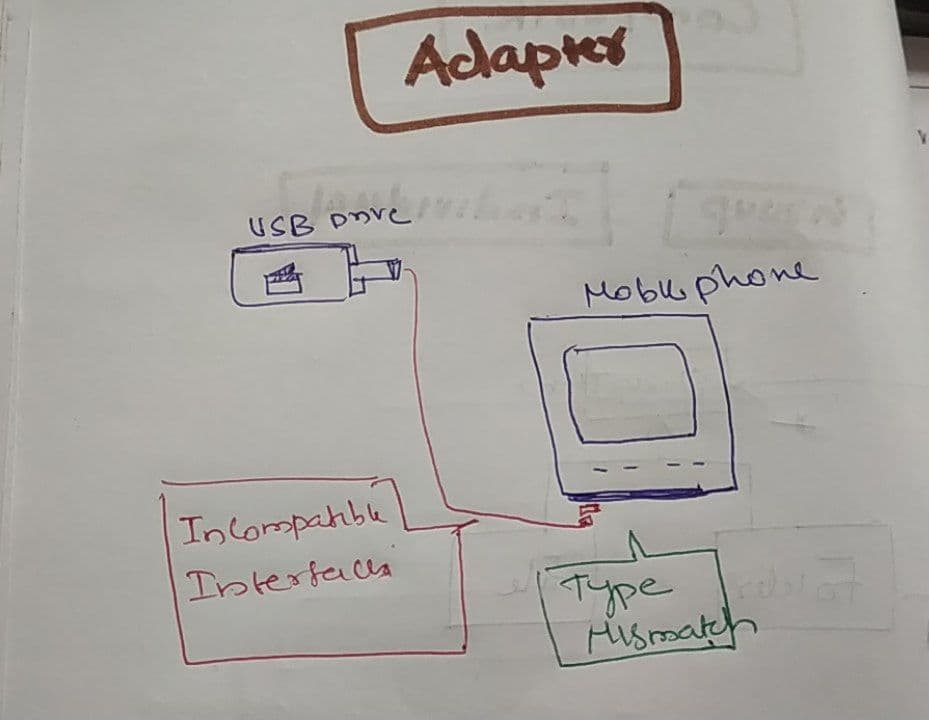 Adapter
USB Drive
Mobile phone
Incompatible
Interfaces
Type
Mismatch